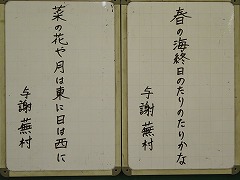 春の海終日のたりのたりかな
与謝蕪村
菜の花や月は東に日は西に
与謝蕪村